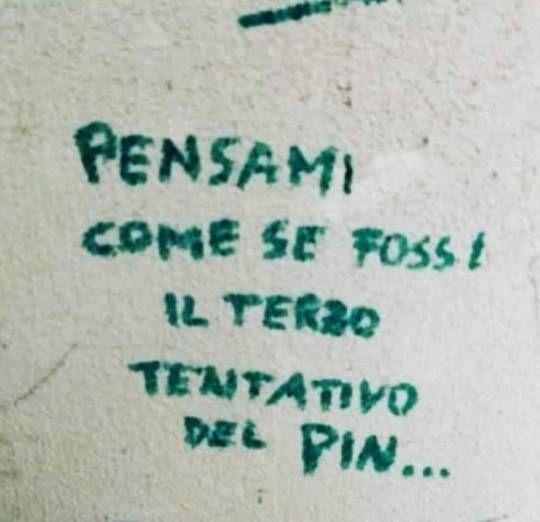 PENSAMI
COME SE FOSSI
IL TERZO
TENTATIVO
DEL PIN...